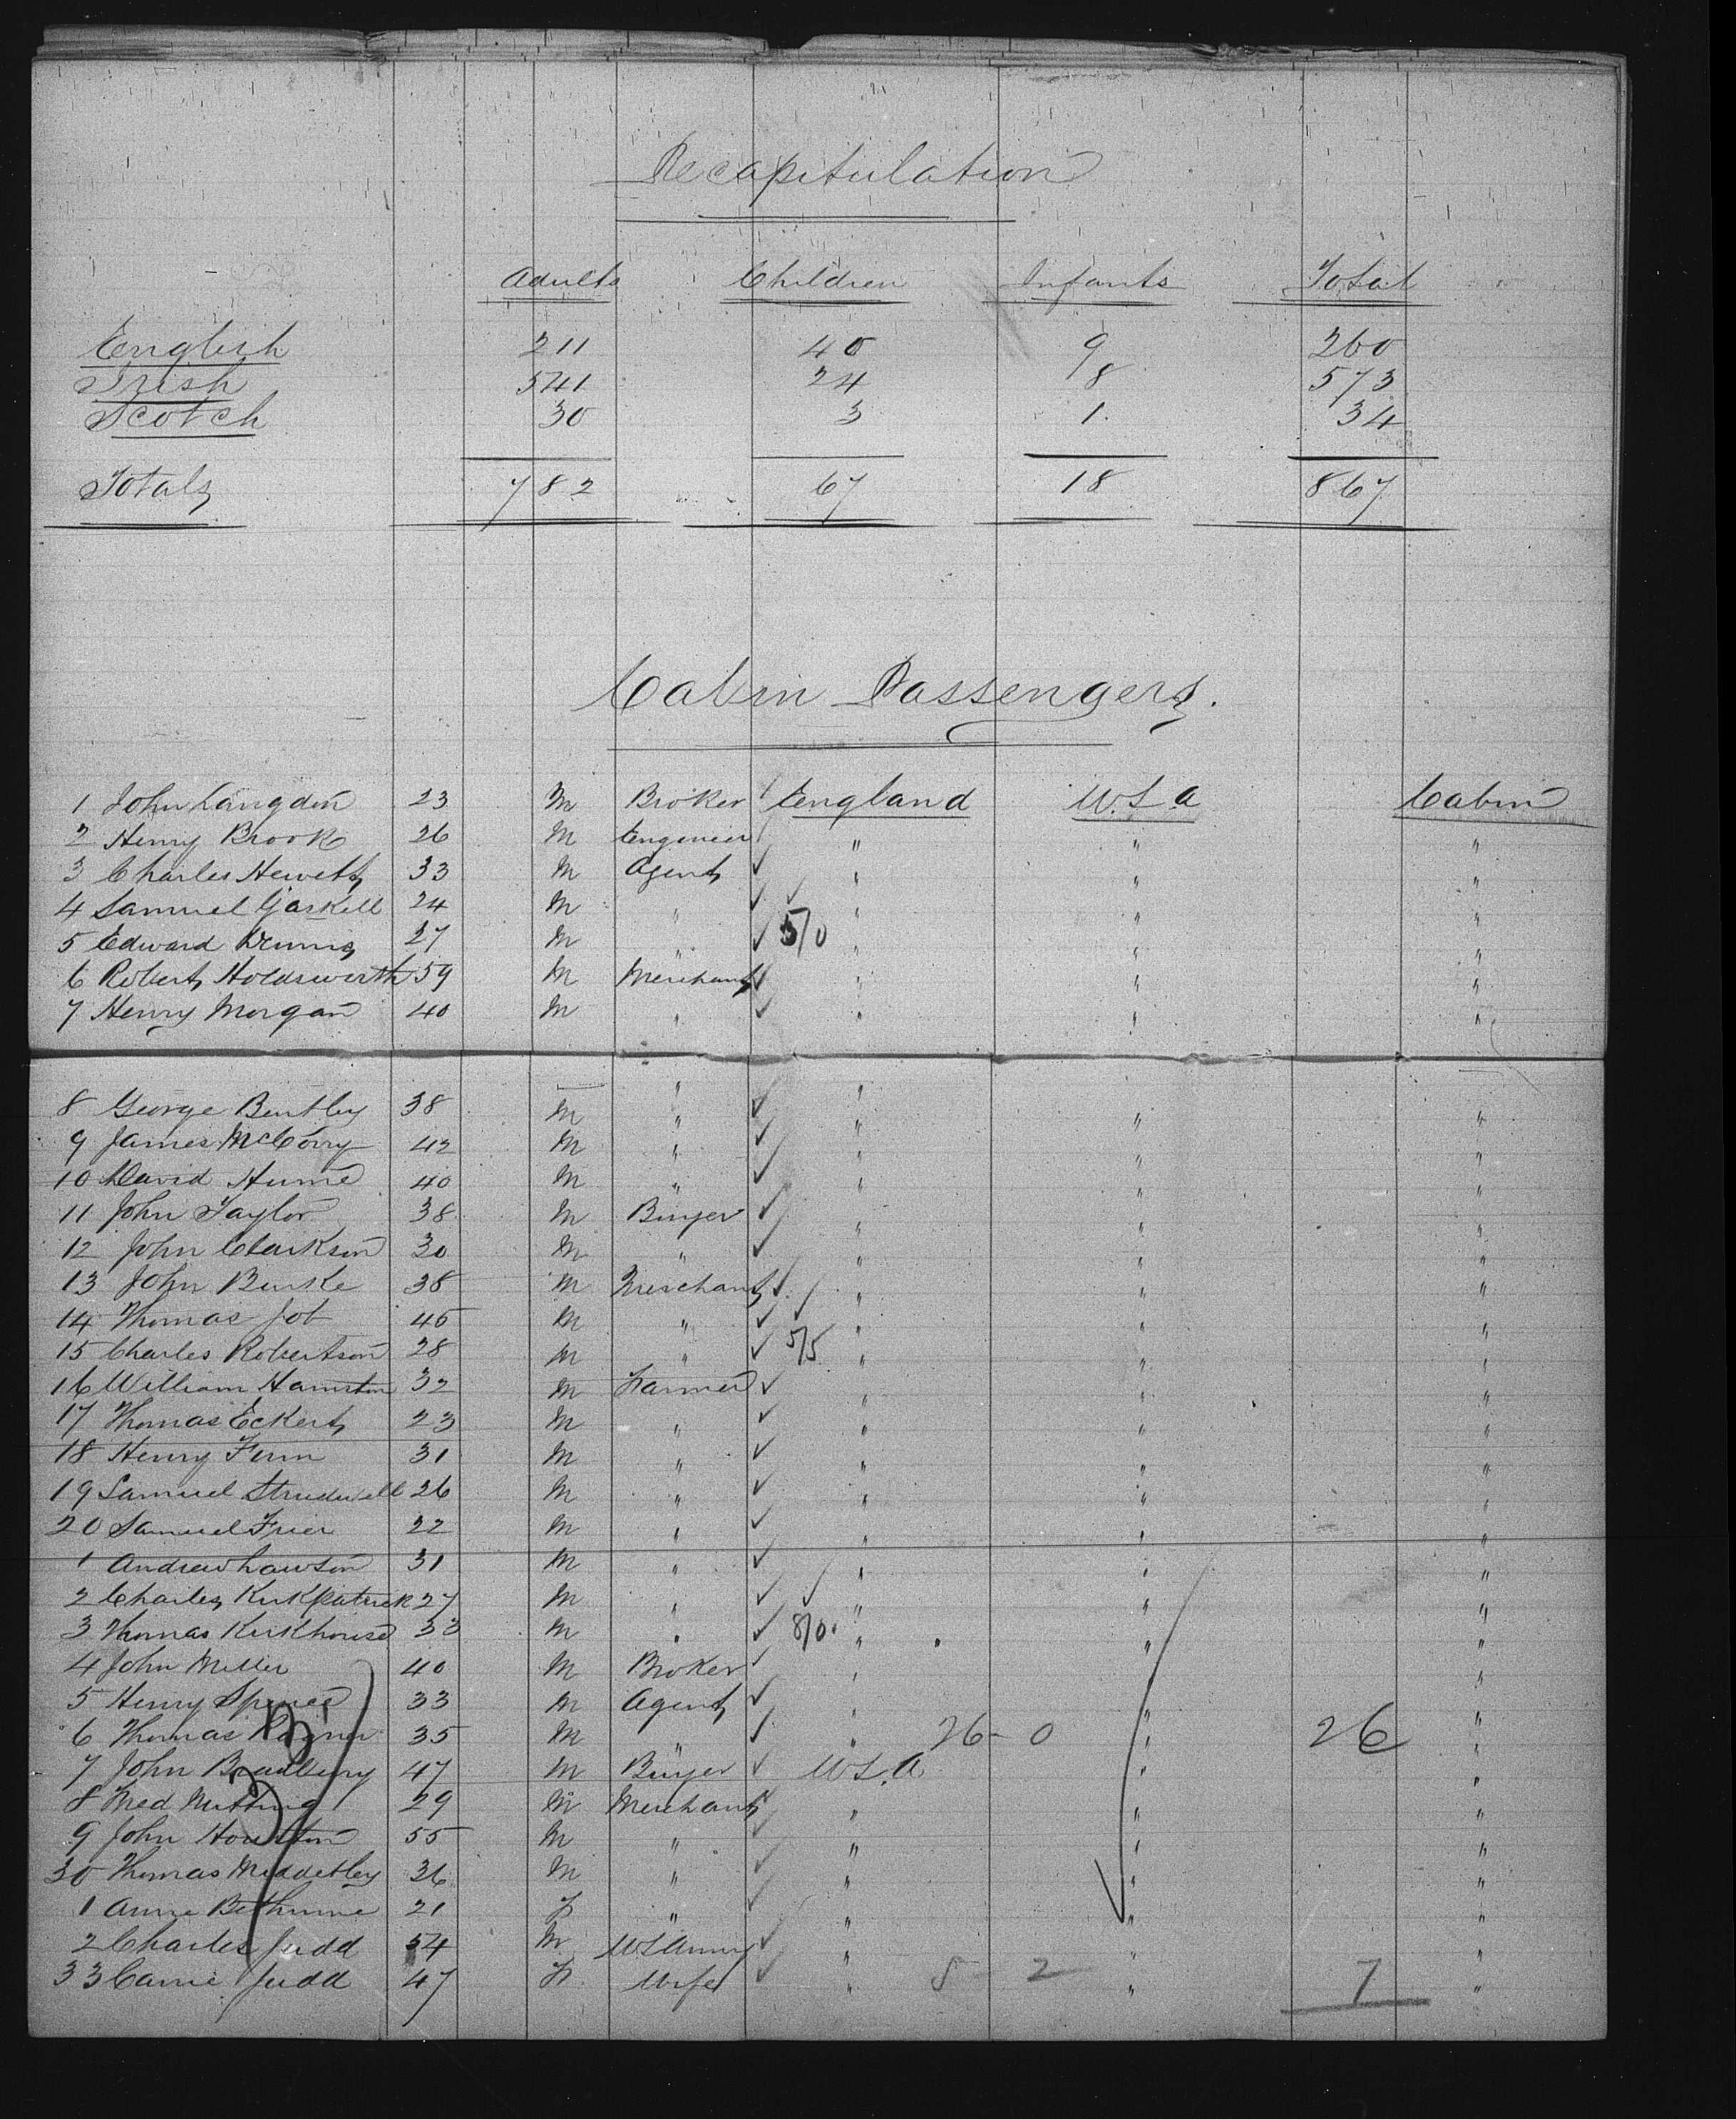 Recapitulation
Adults Children Infants Total
English 211 40 9 260
Irish 541 24 8 573
Scotch 30 3 1. 34
Totals 782 67 18 867
Cabin Passengers.
1 John Langdon 23 M Broker England U.S.A Cabin
2 Henry Brook 26 M Engineer " " "
3 Charles Hewett 33 M Agent ✓ " " "
4 Samuel Gaskell 24 M " ✓ ✓ " " "
5 Edward 27 M " ✓ 5/0 " " "
6 Robert Holdsworth 59 M Merchant ✓ " " "
7 Henry Morgan 40 M " ✓ " " "
8 George Bentley 38 M " ✓ " " "
9 James McCorry 42 M " ✓ " " "
10 David Hume 40 M " ✓ " " "
11 John Taylor 38 M Buyer ✓ " " "
12 John Clarkson 30 M " ✓ " " "
13 John Burke 38 M Merchant ✓ " " "
14 Thomas Job 45 M " ✓ ✓ " " "
15 Charles Robertson 28 M " ✓ 5/5 " " "
16 William 32 M Farmer ✓ " " "
17 Thomas Eckert 23 M " ✓ " " "
18 Henry 31 M " ✓ " " "
19 Samuel Strudwell 26 M " ✓ " " "
20 Samuel Frier 22 M " ✓ " " "
1 Andrew Lawson 31 M " ✓ " " "
2 Charles Kirkpatrick 27 M " ✓ ✓ " " "
3 Thomas Kirkhouse 33 M " ✓ 8/0 " " "
4 John Miller 40 M Broker ✓ " " "
5 Henry Spence 33 M Agent ✓ " " "
6 Thomas 35 M " ✓ " 26 - 0 " 26 "
7 John Bradbury 47 M Buyer ✓ U.S.A " "
8 Fred Nutting 29 M Merchant ✓ " " "
9 John Houston 55 M " ✓ " " "
30 Thomas Middetley 36 M " ✓ " " "
1 Anne Bethune 21 F " ✓ " " "
2 Charles Judd 54 M US Army ✓ " " "
33 Carrie Judd 47 F Wife ✓ " 5 2 " 7 "